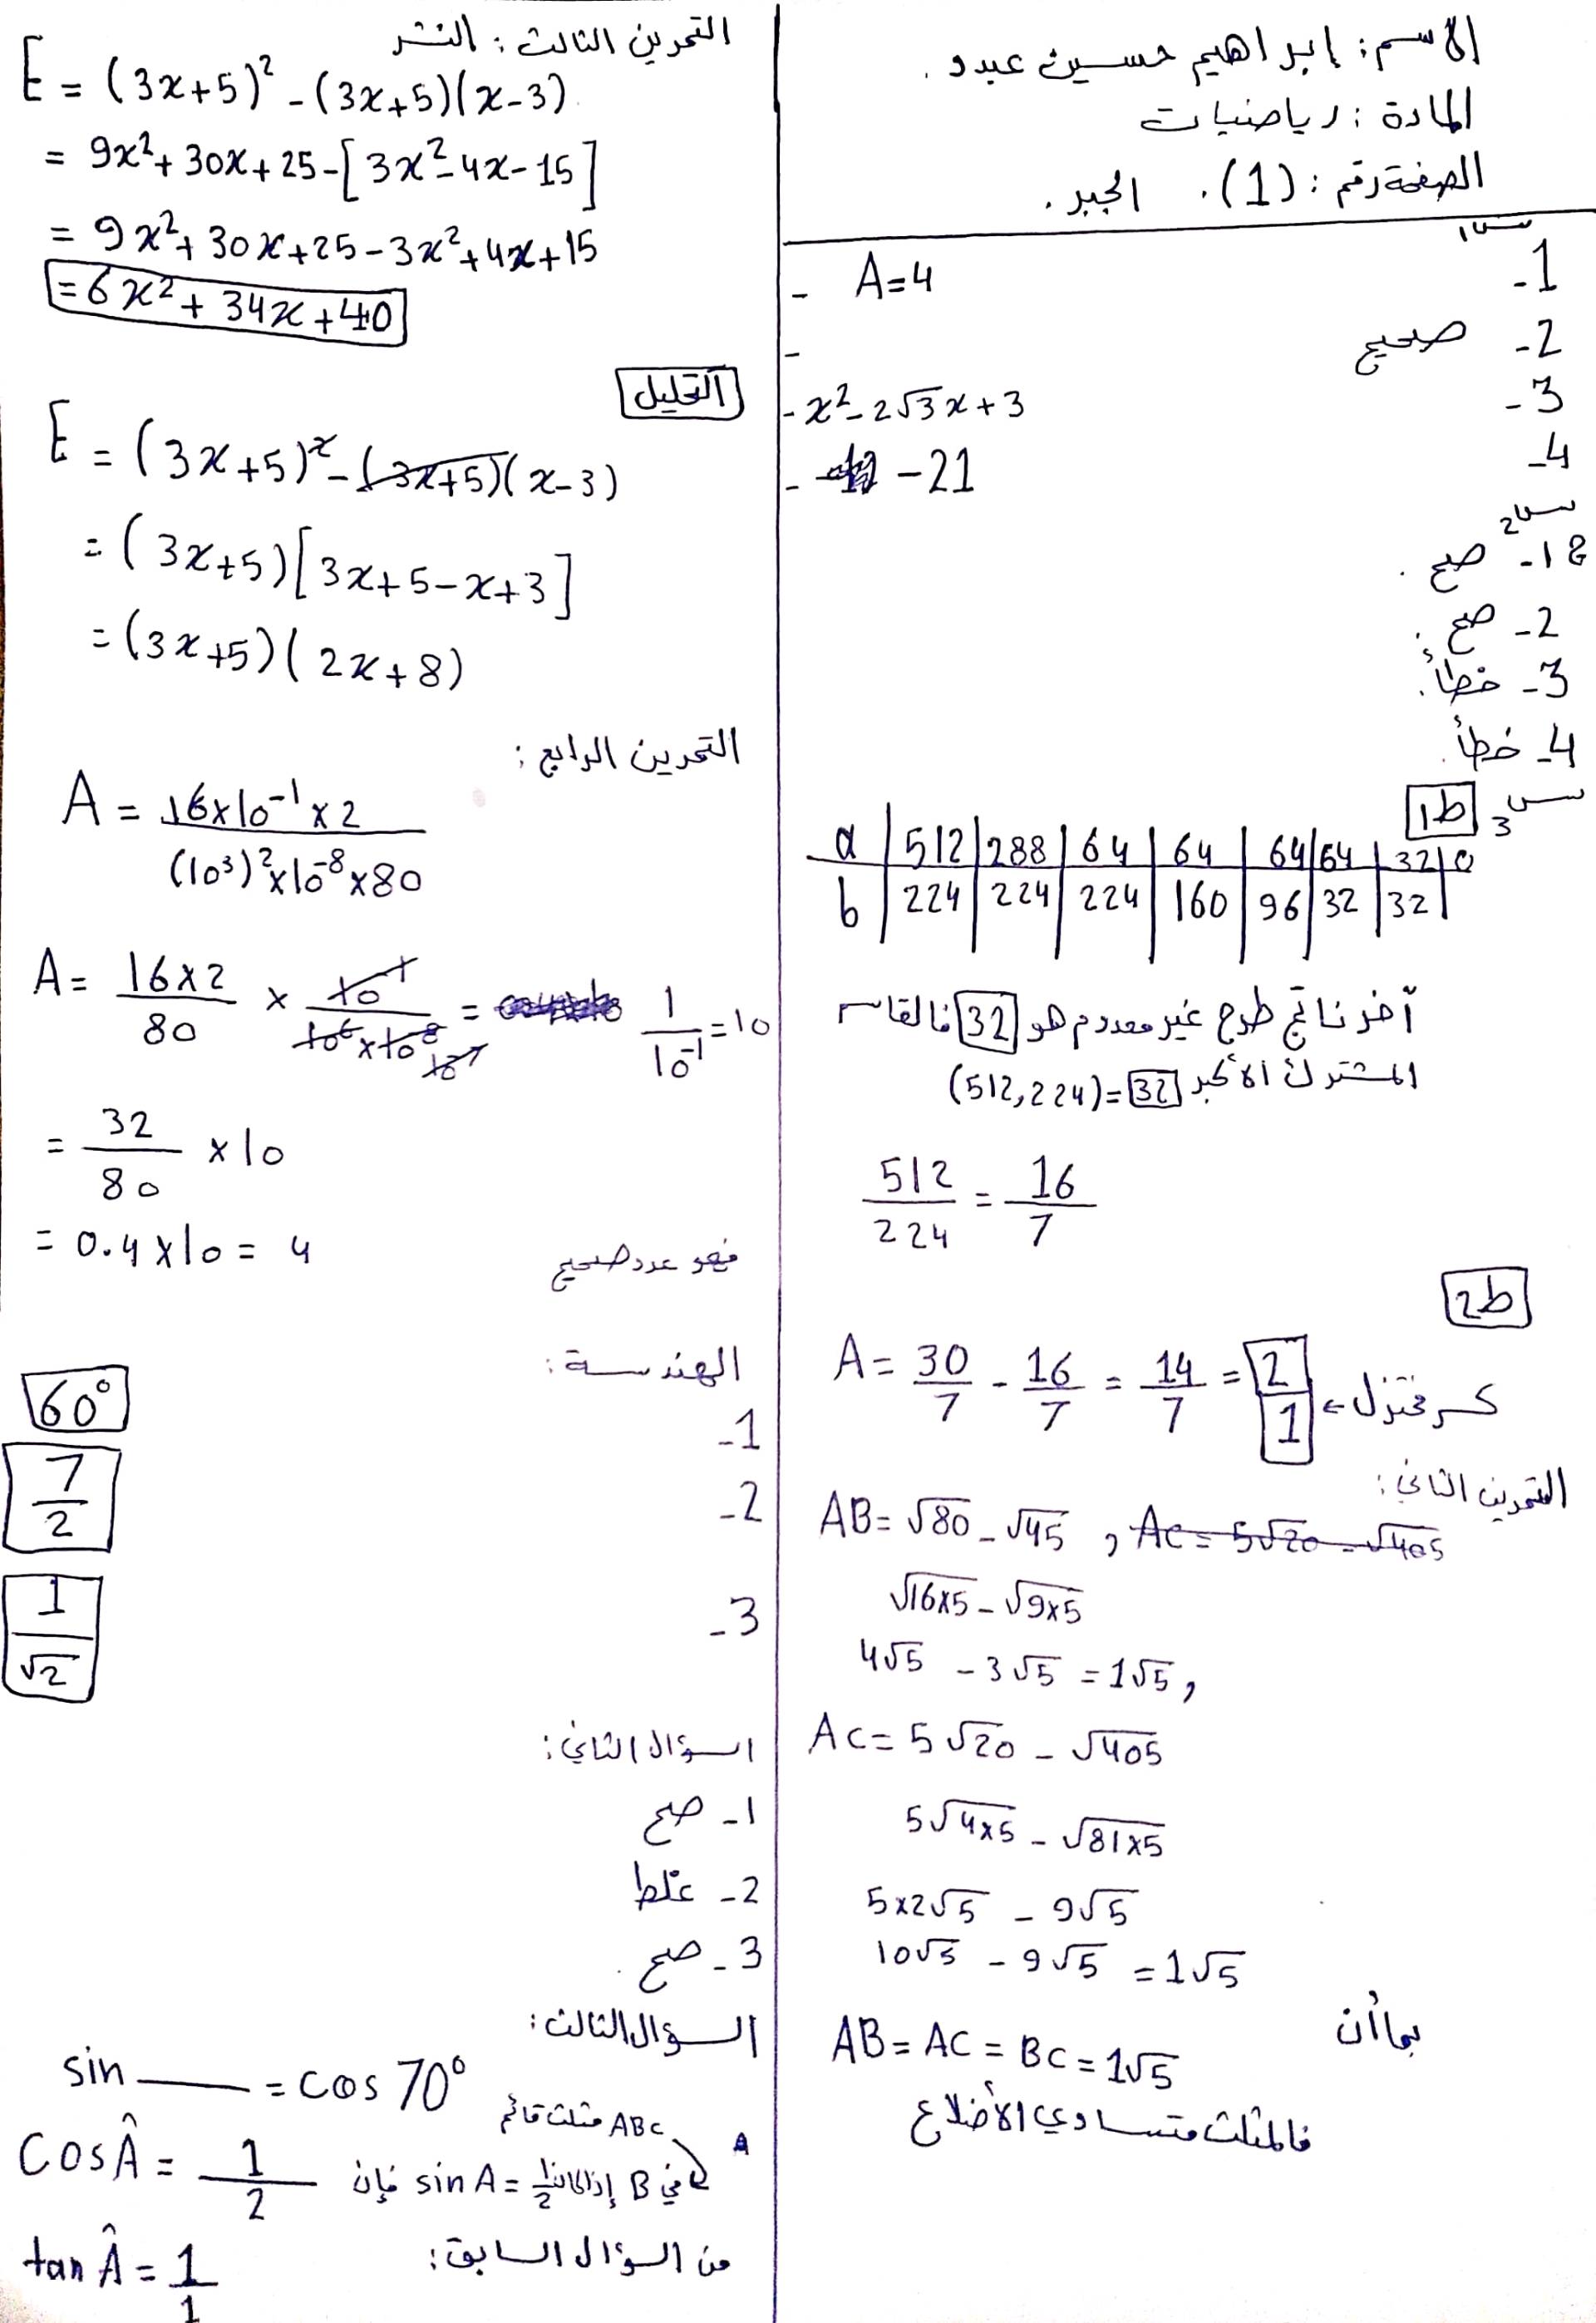 الاسم: ابراهيم حسين عبدو.
المادة: رياضيات
الصفحة رقم: (1). الجبر.
س1
1- A=4
2- صحيح
3- x²-2√3x+3
4- -21
س2
1- صح.
2- صح.
3- خطأ.
4- خطأ.
س3 ط1
a | 512 | 288 | 64 | 64 | 64 | 64 | 32 | 0
b | 224 | 224 | 224 | 160 | 96 | 32 | 32 |
آخر ناتج طرح غير معدوم هو 32 فالقاسم
المشترك الأكبر 32=(512,224)
512/224 = 16/7
ط2
A= 30/7 - 16/7 = 14/7 = 2/1 ← كسر مختزل
التمرين الثاني:
AB= √80 - √45 , AC = 5√20 - √405
√16x5 - √9x5
4√5 - 3√5 = 1√5,
AC= 5√20 - √405
5√4x5 - √81x5
5x2√5 - 9√5
10√5 - 9√5 = 1√5
بما أن AB= AC = BC = 1√5
فالمثلث متساوي الأضلاع
التمرين الثالث: النشر
E = (3x+5)² - (3x+5)(x-3)
= 9x²+30x+25-[3x²-4x-15]
= 9x²+30x+25-3x²+4x+15
=6x²+34x+40
التحليل
E = (3x+5)² - (3x+5)(x-3)
= (3x+5)[3x+5-x+3]
= (3x+5)(2x+8)
التمرين الرابع:
A = 16x10⁻¹x2 / (10³)²x10⁻⁸x80
A= 16x2/80 x 10⁻¹/10⁶x10⁻⁸ = 1/10⁻¹ = 10
= 32/80 x10
= 0.4x10= 4 فهو عدد صحيح
الهندسة:
1- 60°
2- 7/2
3- 1/√2
السؤال الثاني:
1- صح
2- غلط
3- صح.
السؤال الثالث:
sin ___ = cos 70°
ABC مثلث قائم A
في B إذا كان sin A = 1/2 فإن COSÂ = 1/2
من السؤال السابق: tan Â = 1/1